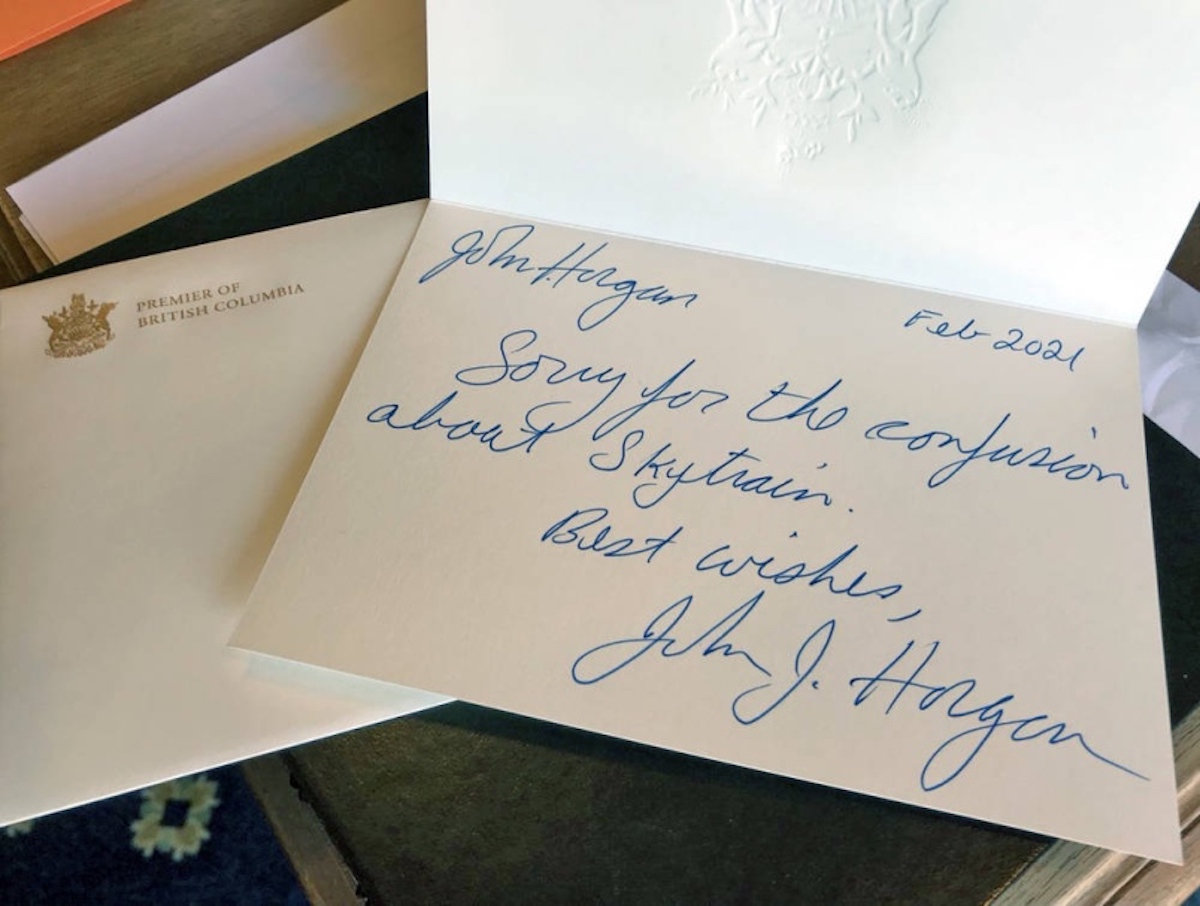 PREMIER OF
BRITISH COLUMBIA
John Horgan
Feb 2021
Sorry for the confusion
about Skytrain.
Best wishes,
John J. Horgan